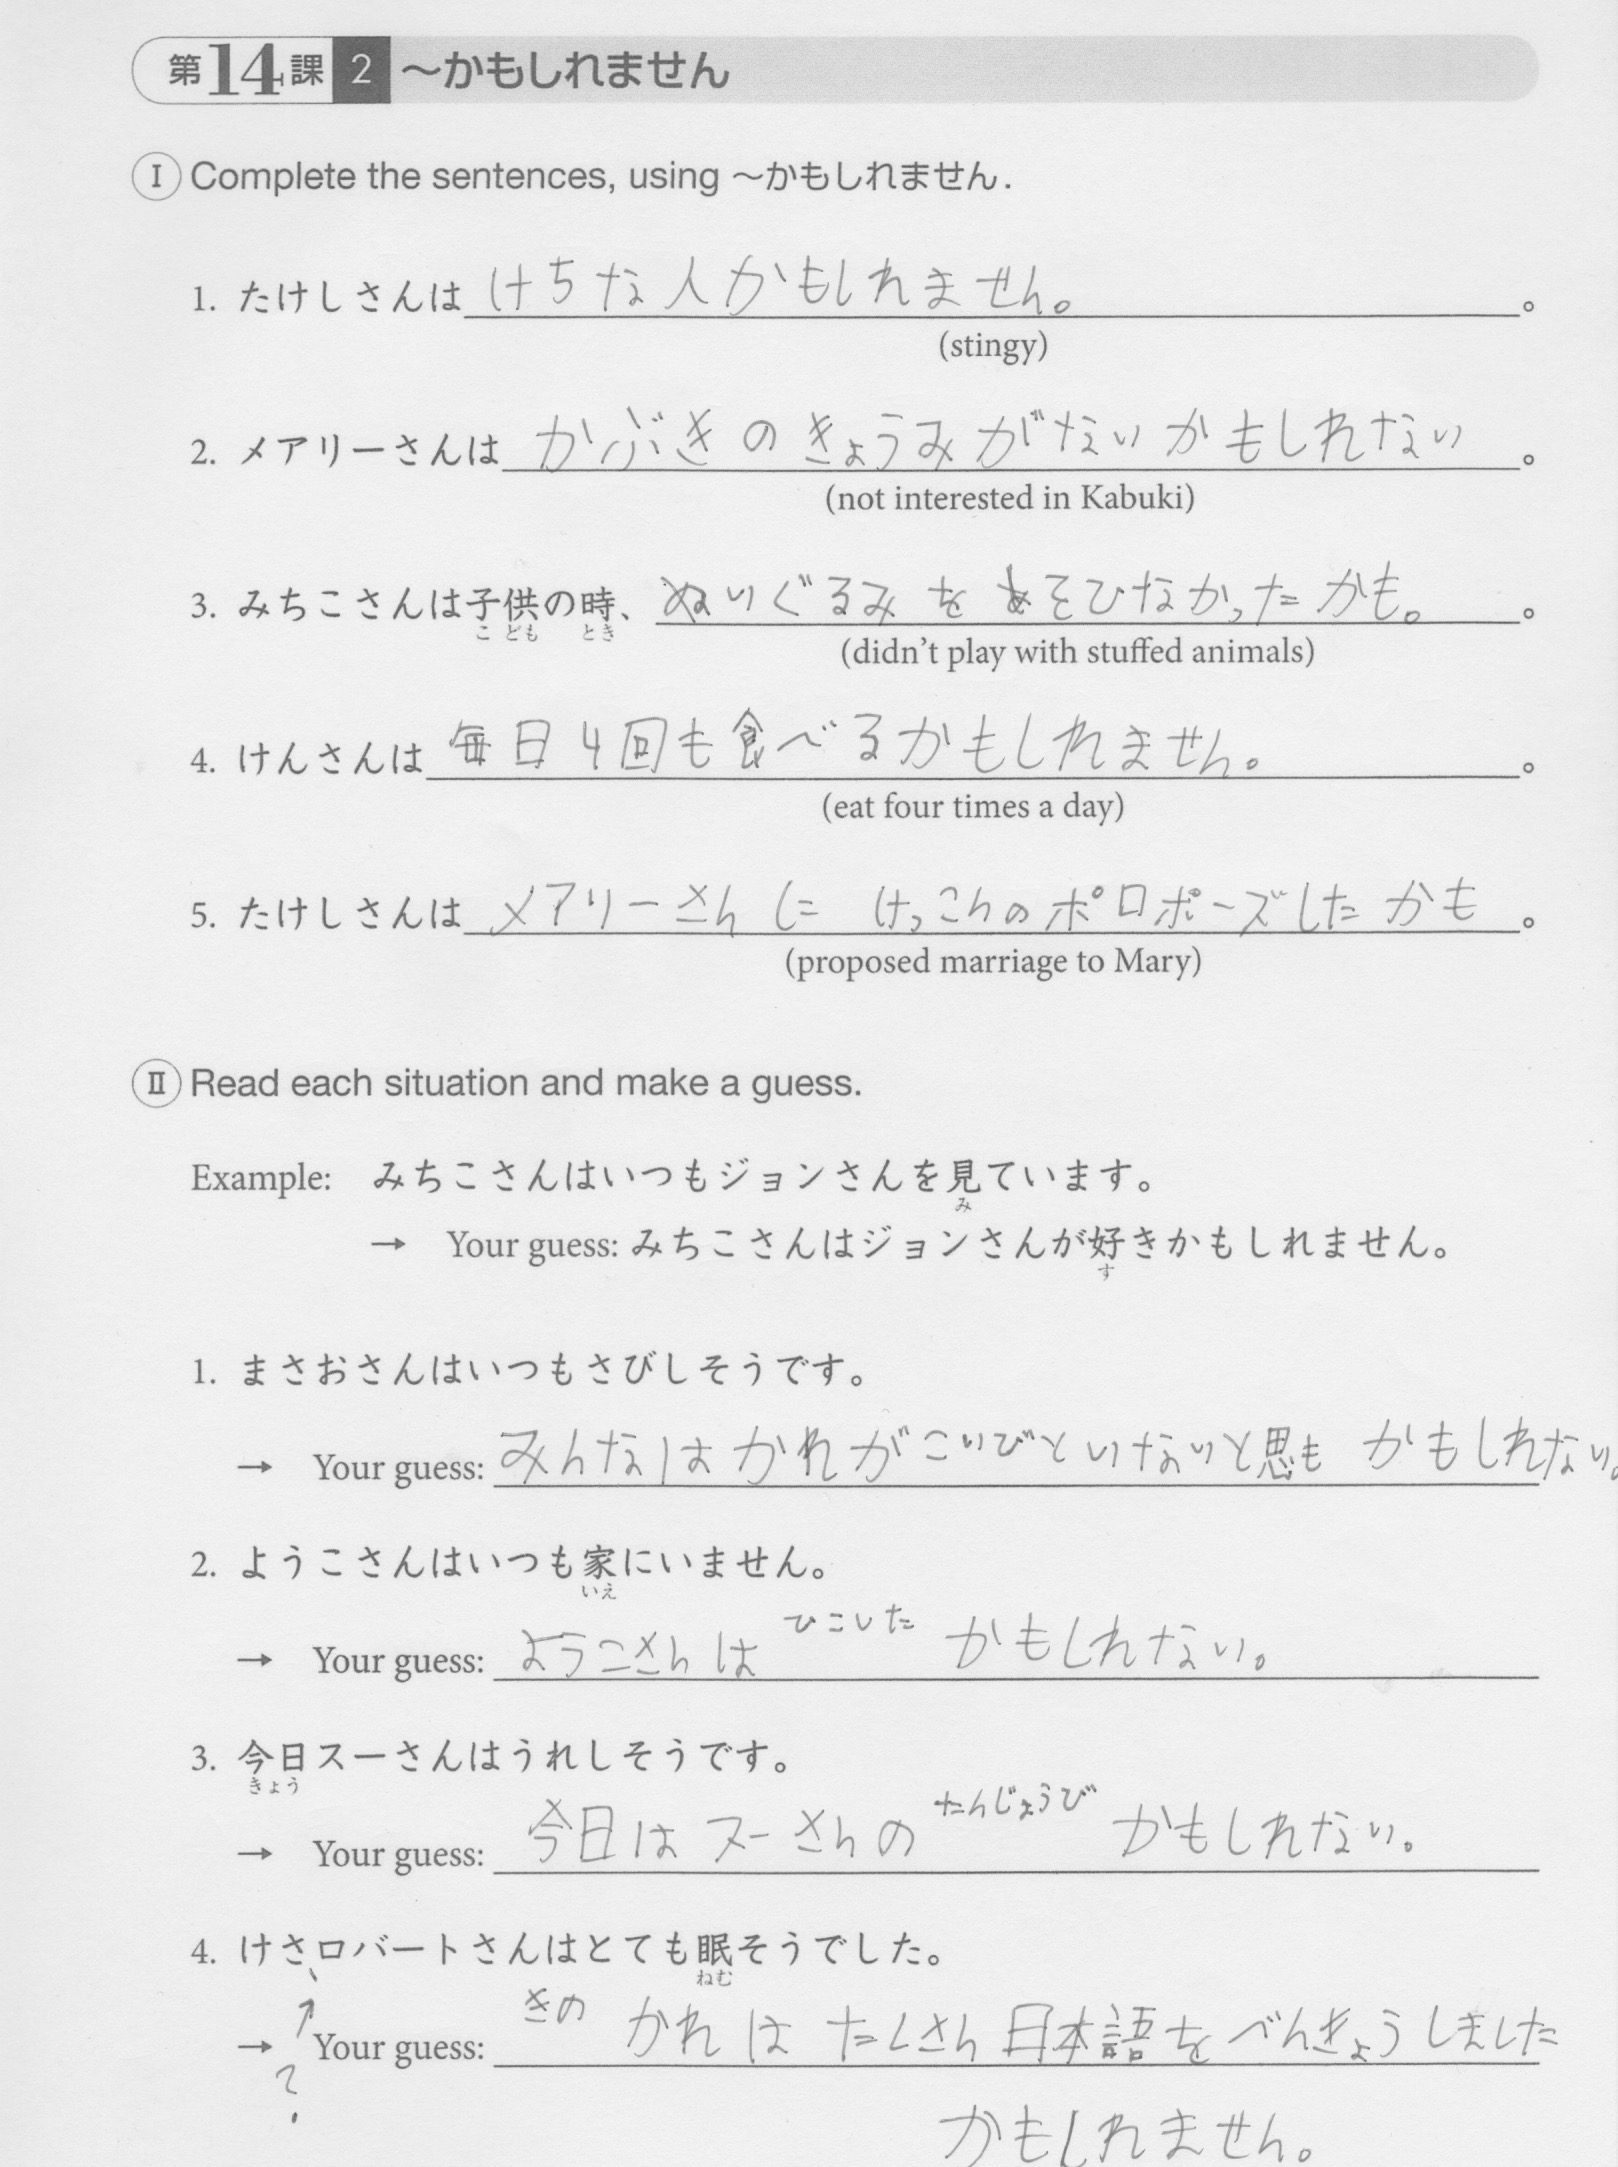 第14課 2 ～かもしれません
Ⅰ Complete the sentences, using ～かもしれません.
1. たけしさんは けちな人かもしれません。 。
(stingy)
2. メアリーさんは かぶきのきょうみがないかもしれない 。
(not interested in Kabuki)
3. みちこさんは子供の時、 ぬいぐるみをあそびなかったかも。 。
こ ども とき
(didn't play with stuffed animals)
4. けんさんは 毎日4回も食べるかもしれません。 。
(eat four times a day)
5. たけしさんは メアリーさんに けっこんのポロポーズしたかも 。
(proposed marriage to Mary)
Ⅱ Read each situation and make a guess.
Example: みちこさんはいつもジョンさんを見ています。
み
→ Your guess: みちこさんはジョンさんが好きかもしれません。
す
1. まさおさんはいつもさびしそうです。
→ Your guess: みんなはかれがこいびといないと思も かもしれない。
2. ようこさんはいつも家にいません。
いえ
→ Your guess: ようこさんは ひこした かもしれない。
3. 今日スーさんはうれしそうです。
きょう
→ Your guess: 今日はスーさんの たんじょうび かもしれない。
4. けさロバートさんはとても眠そうでした。
ねむ
→ Your guess: きの かれは たくさん日本語をべんきょうしました
?
かもしれません。